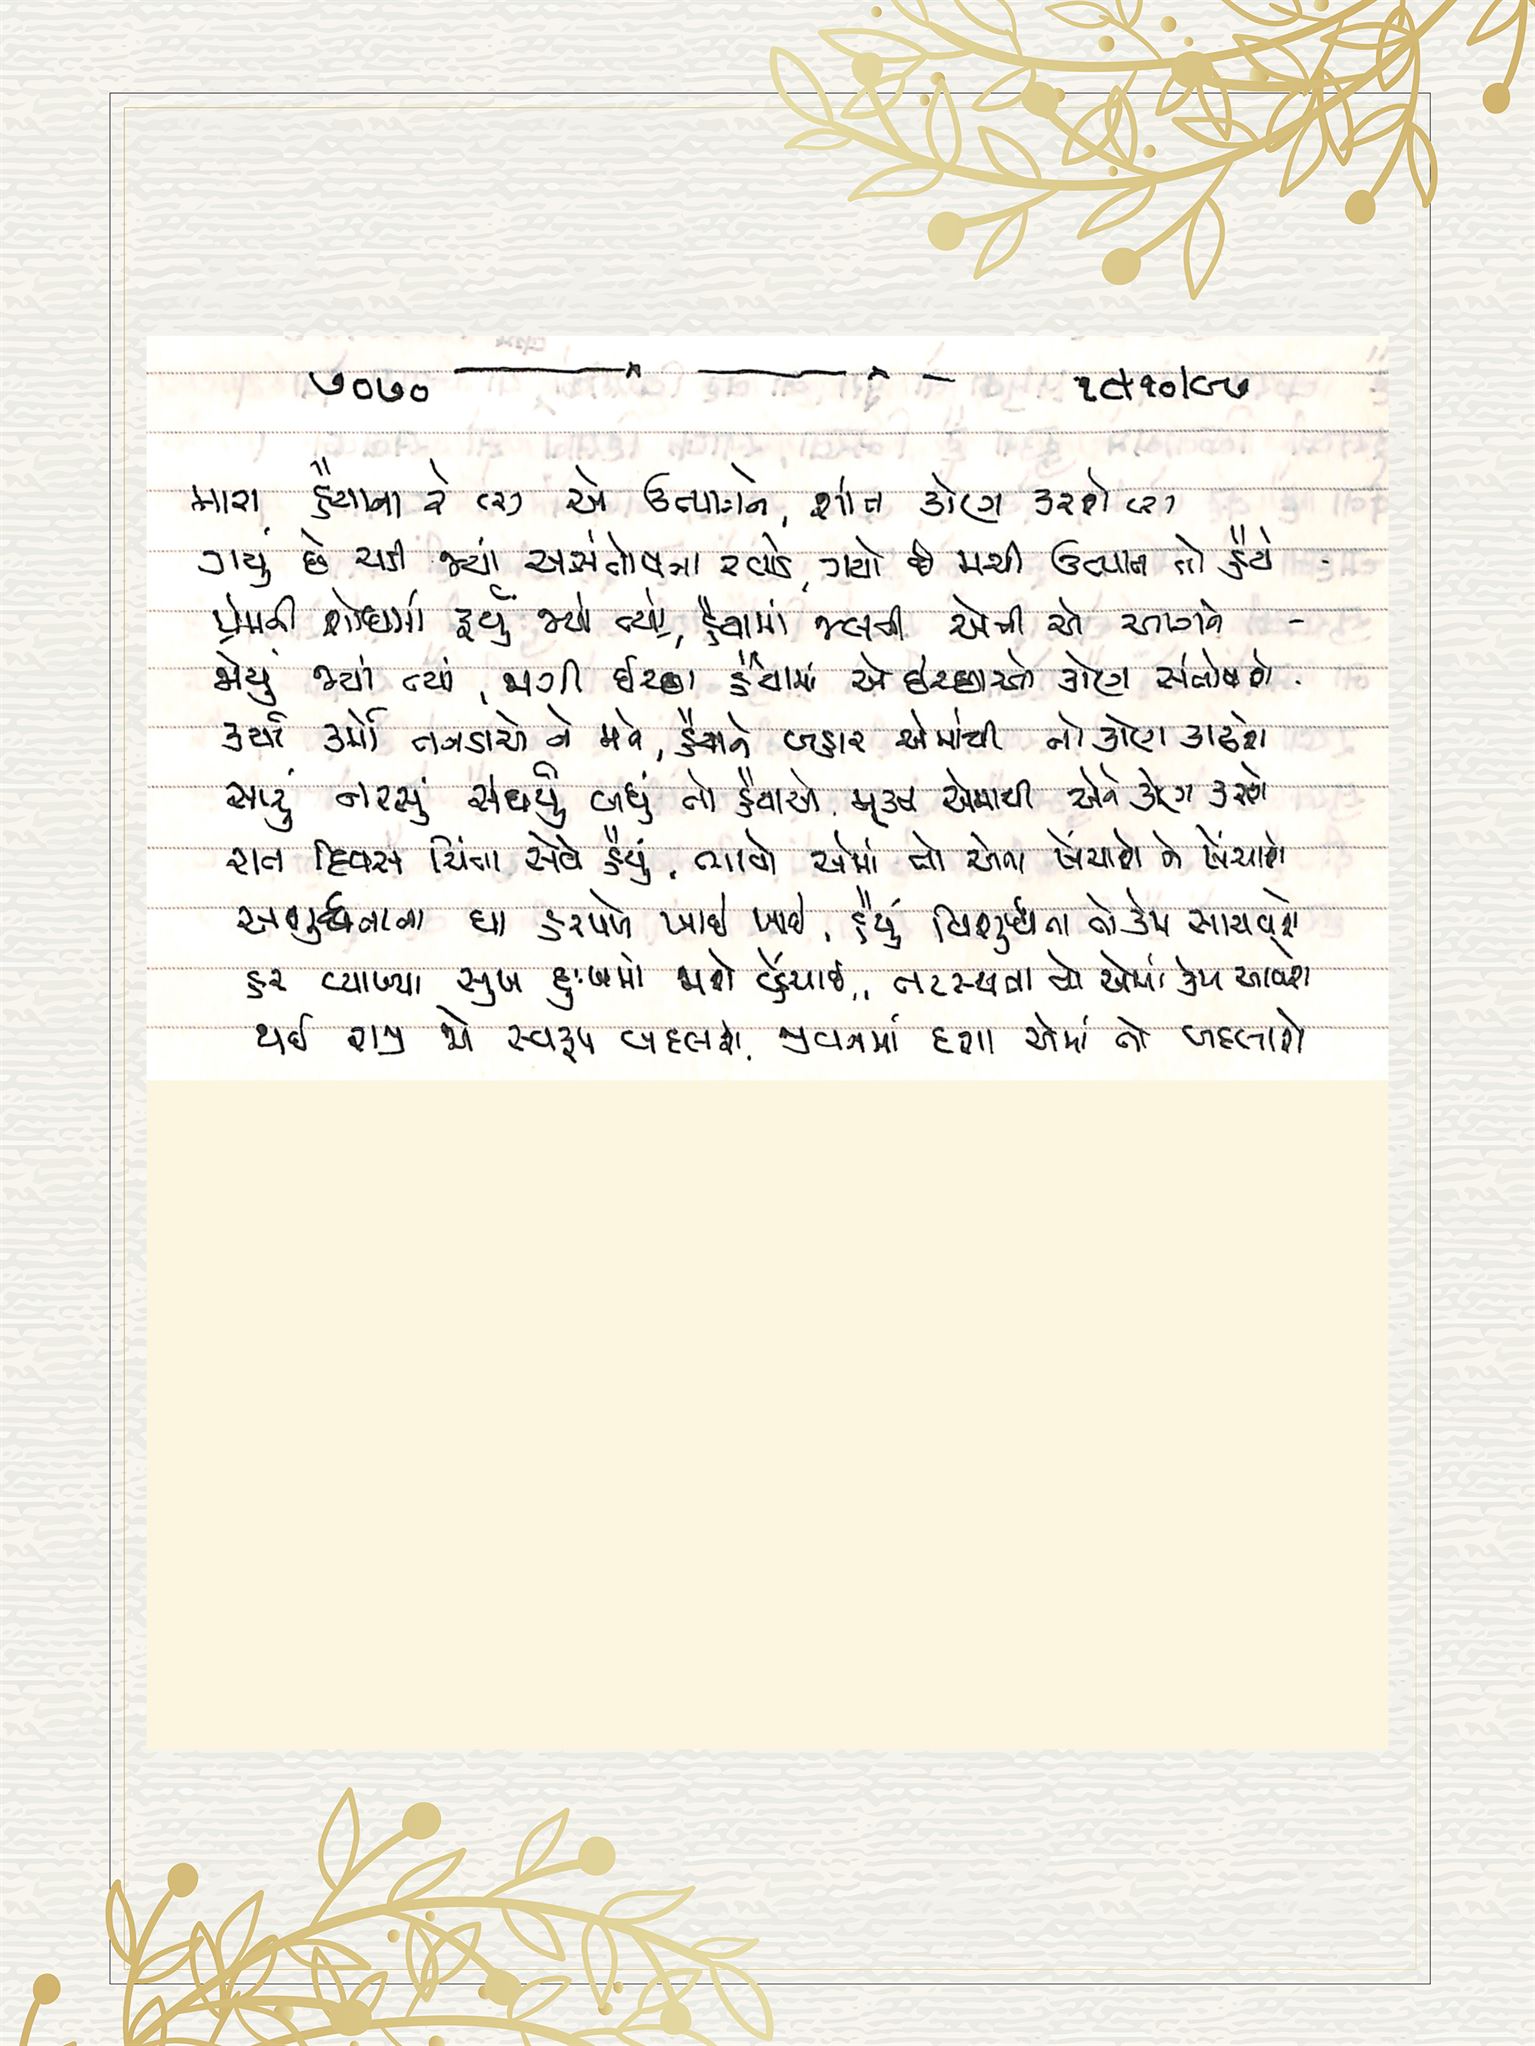 ૭૦૭૦ ૧૮/૧૦/૯૭
મારા હૈયાના રે એ ઉત્પાતને, શાંત કોણ કરશે
ગયું છે ચડી જ્યાં અસંતોષના રવાડે, ગયો છે મચી ઉત્પાત તો હૈયે
પ્રેમની શોધમાં ફર્યું જ્યાં ત્યાં, હૈયામાં જલતી એની એ આગને -
જોયું જ્યાં ત્યાં, જાગી ઇચ્છા હૈયામાં એ ઇચ્છાઓ કોણ સંતોષશે.
કર્યા કર્મો તનડાએ ને મને, હૈયાને બહાર એમાંથી તો કોણ કાઢશે
સારું નરસું સંઘર્યું બધું તો હૈયાએ. મુક્ત એમાંથી એને કોણ કરશે
રાત દિવસ ચિંતા સેવે હૈયું, ભાવો એમાં તો એના ખેંચાશે ને ખેંચાશે
અશુદ્ધતાના ઘા હરપળે ખાઇ ખાઇ, હૈયું વિશુદ્ધતા તો કેમ સાચવશે
હર વ્યાખ્યા સુખ દુઃખમાં જાશે વ્હેંચાઇ, તટસ્થતા તો એમાં કેમ આવશે
થઇ રાજી જો સ્વરૂપ બદલશે. જીવનમાં દશા એમાં તો બદલાશે